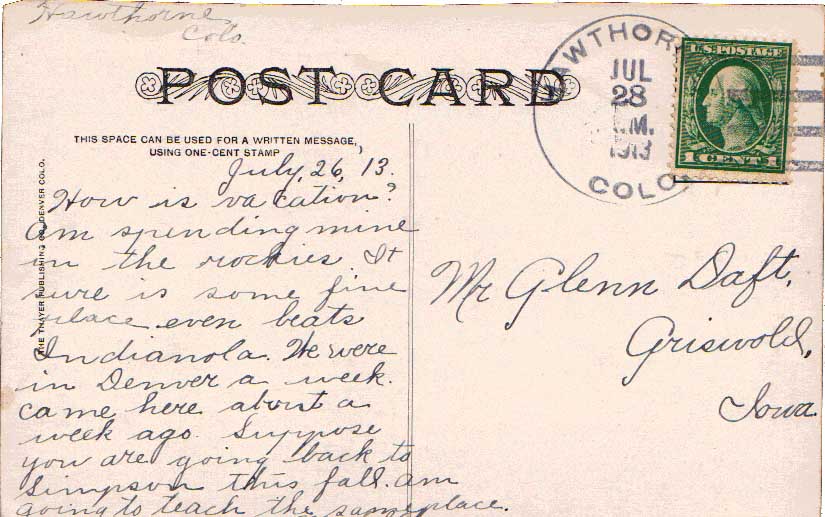 Hawthorne,
Colo.
POST CARD
THIS SPACE CAN BE USED FOR A WRITTEN MESSAGE,
USING ONE-CENT STAMP
July, 26, '13.
How is vacation?
am spending mine
in the rockies It
sure is some fine
place even beats
Indianola. We were
in Denver a week.
came here about a
week ago. Suppose
you are going back to
Simpson this fall. am
going to teach the same place.
THE THAYER PUBLISHING CO., DENVER COLO.
HAWTHOR
JUL
28
M.
1913
COLO.
U.S. POSTAGE
1 CENT 1
Mr Glenn Daft,
Griswold,
Iowa.